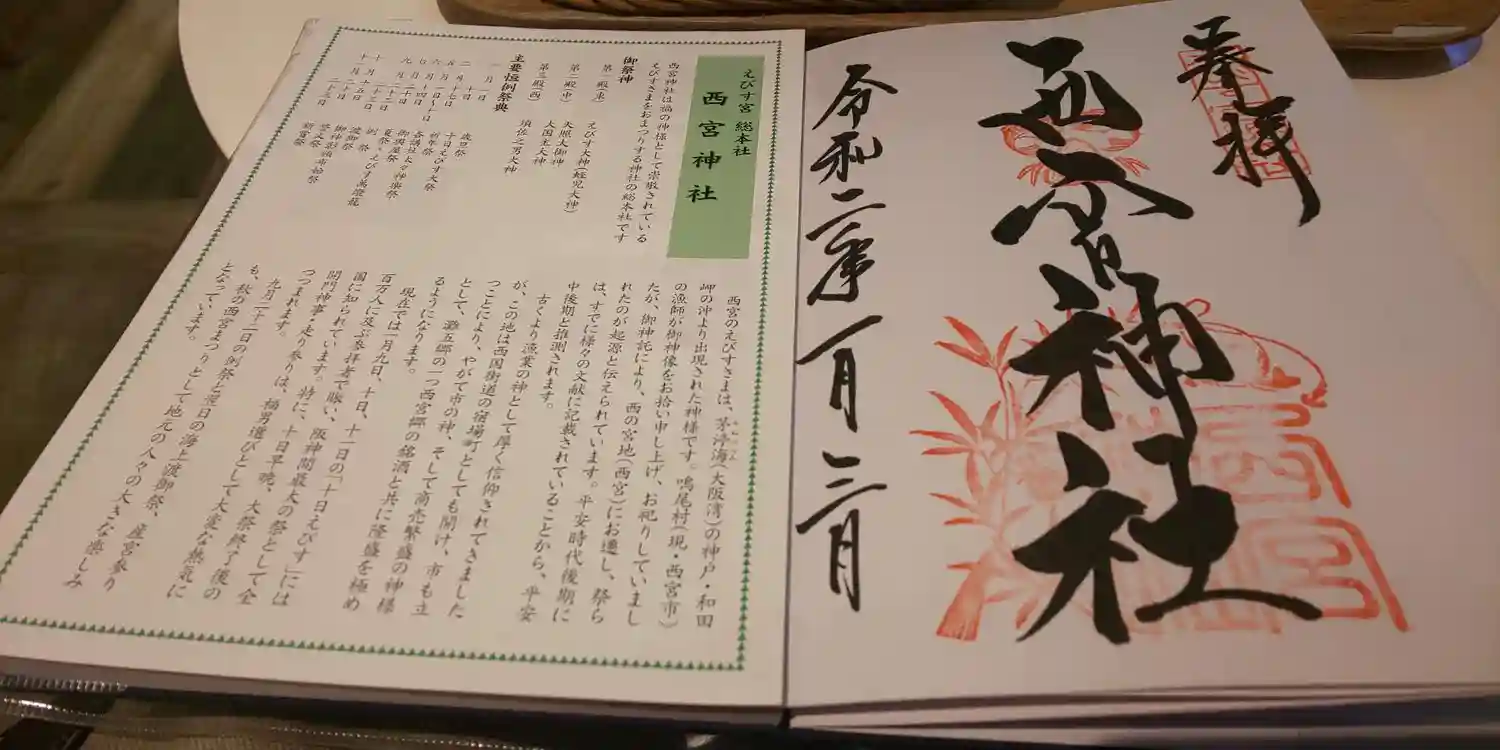 奉拝
西宮神社
令和二年一月
えびす宮 総本社
西宮神社
西宮神社は福の神様として崇敬されている
えびすさまをおまつりする神社の総本社です
御祭神
第一殿(東) えびす大神(蛭児大神)
第二殿(中) 天照大御神
大国主大神
第三殿(西) 須佐之男大神
主要恒例祭典
一月 一日 歳旦祭
十日 十日えびす大祭
二月 十七日 祈年祭
各講社太々神楽祭
六月 十四日 御輿屋祭
七月 二十日 夏祭・えびす萬燈籠
九月 二十二日 例祭
二十三日 渡御祭
十月 十五日 御神影頒布始祭
十一月 二十日 誓文祭
二十三日 新嘗祭
西宮のえびすさまは、茅渟海(大阪湾)の神戸・和田
岬の沖より出現された神様です。鳴尾村(現・西宮市)
の漁師が御神像をお拾い申し上げ、お祀りしていまし
たが、御神託により、西の宮地(西宮)にお遷し、祭ら
れたのが起源と伝えられています。平安時代後期に
は、すでに様々の文献に記載されていることから、平安
中後期と推測されます。
古くより漁業の神として厚く信仰されてきました
が、この地は西国街道の宿場町としても開け、市も立
つことにより、やがて市の神、そして商売繁盛の神様
として、灘五郷の一つ西宮郷の銘酒と共に隆盛を極め
るようになります。
現在では一月九日、十日、十一日の「十日えびす」には
百万人に及ぶ参拝者で賑い、阪神間最大の祭として全
国に知られています。特に、十日早暁、大祭終了後の
開門神事・走り参りは、福男選びとして大変な熱気に
つつまれます。
九月二十二日の例祭と翌日の海上渡御祭、産宮参り
も、秋の西宮まつりとして地元の人々の大きな楽しみ
となっています。